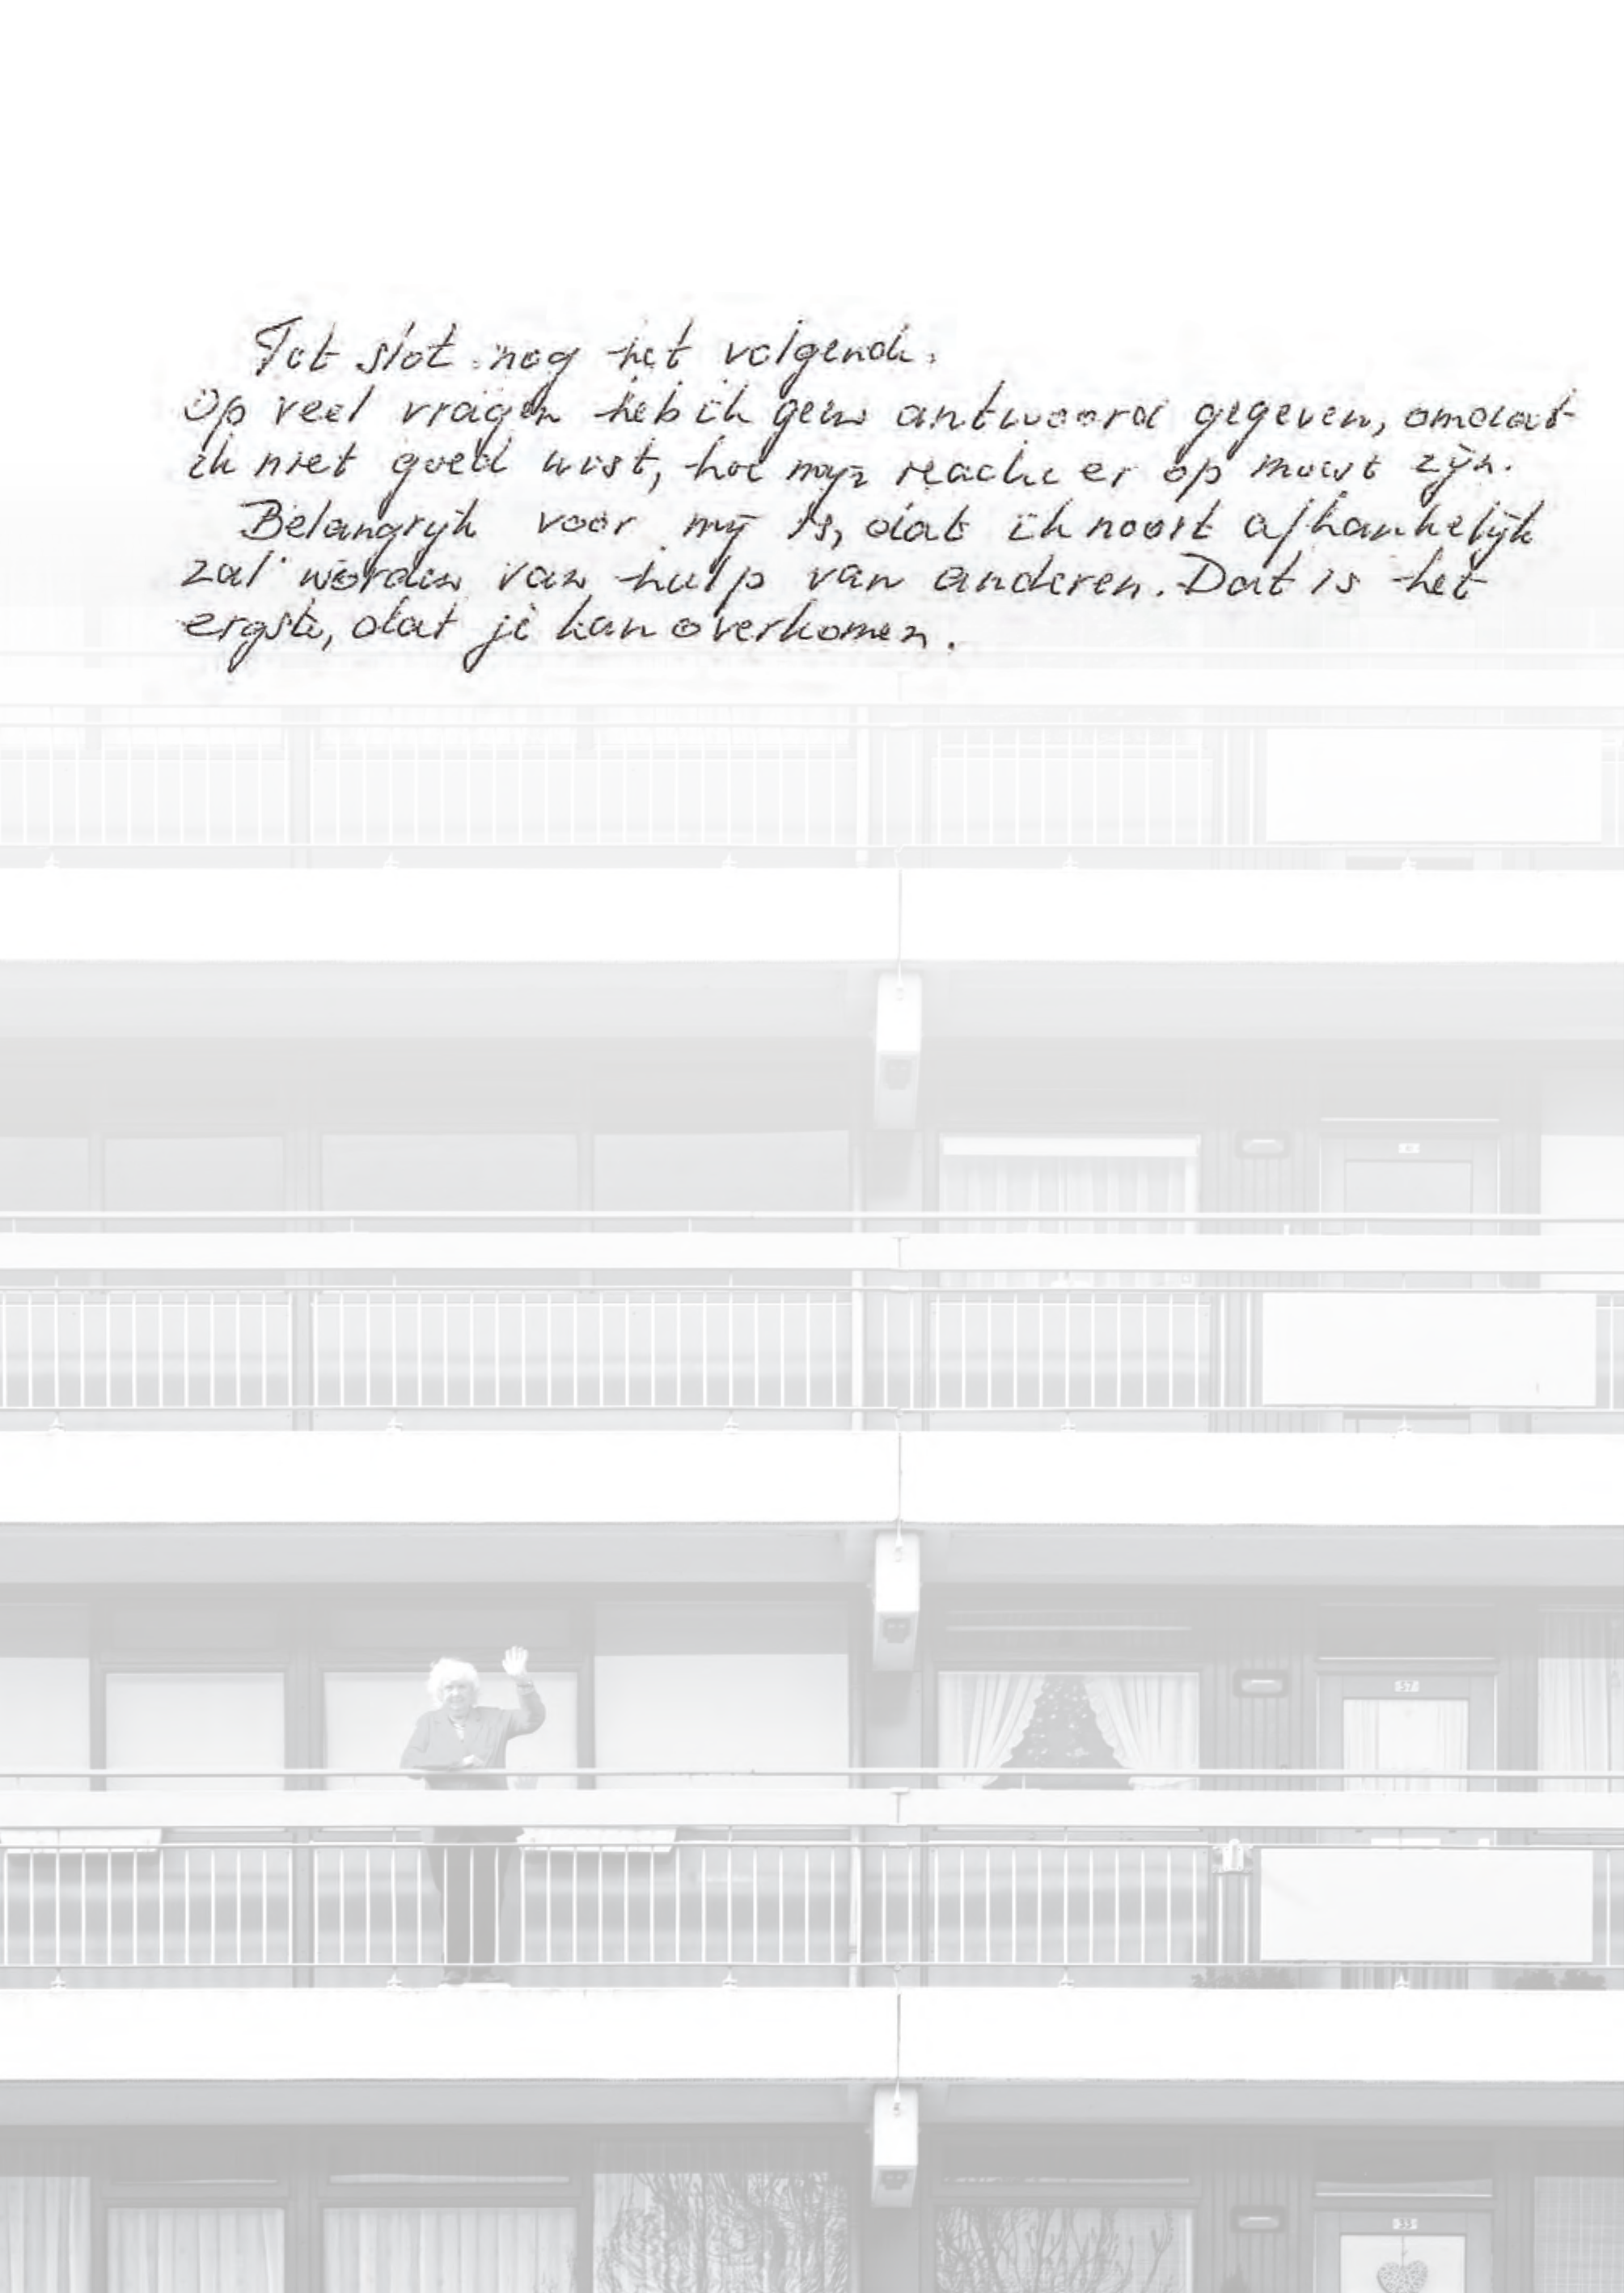 Tot slot nog het volgende.
Op veel vragen heb ik geen antwoord gegeven, omdat
ik niet goed wist, hoe mijn reactie er op moest zijn.
Belangrijk voor mij is, dat ik nooit afhankelijk
zal worden van hulp van anderen. Dat is het
ergste, dat je kan overkomen.
57
33